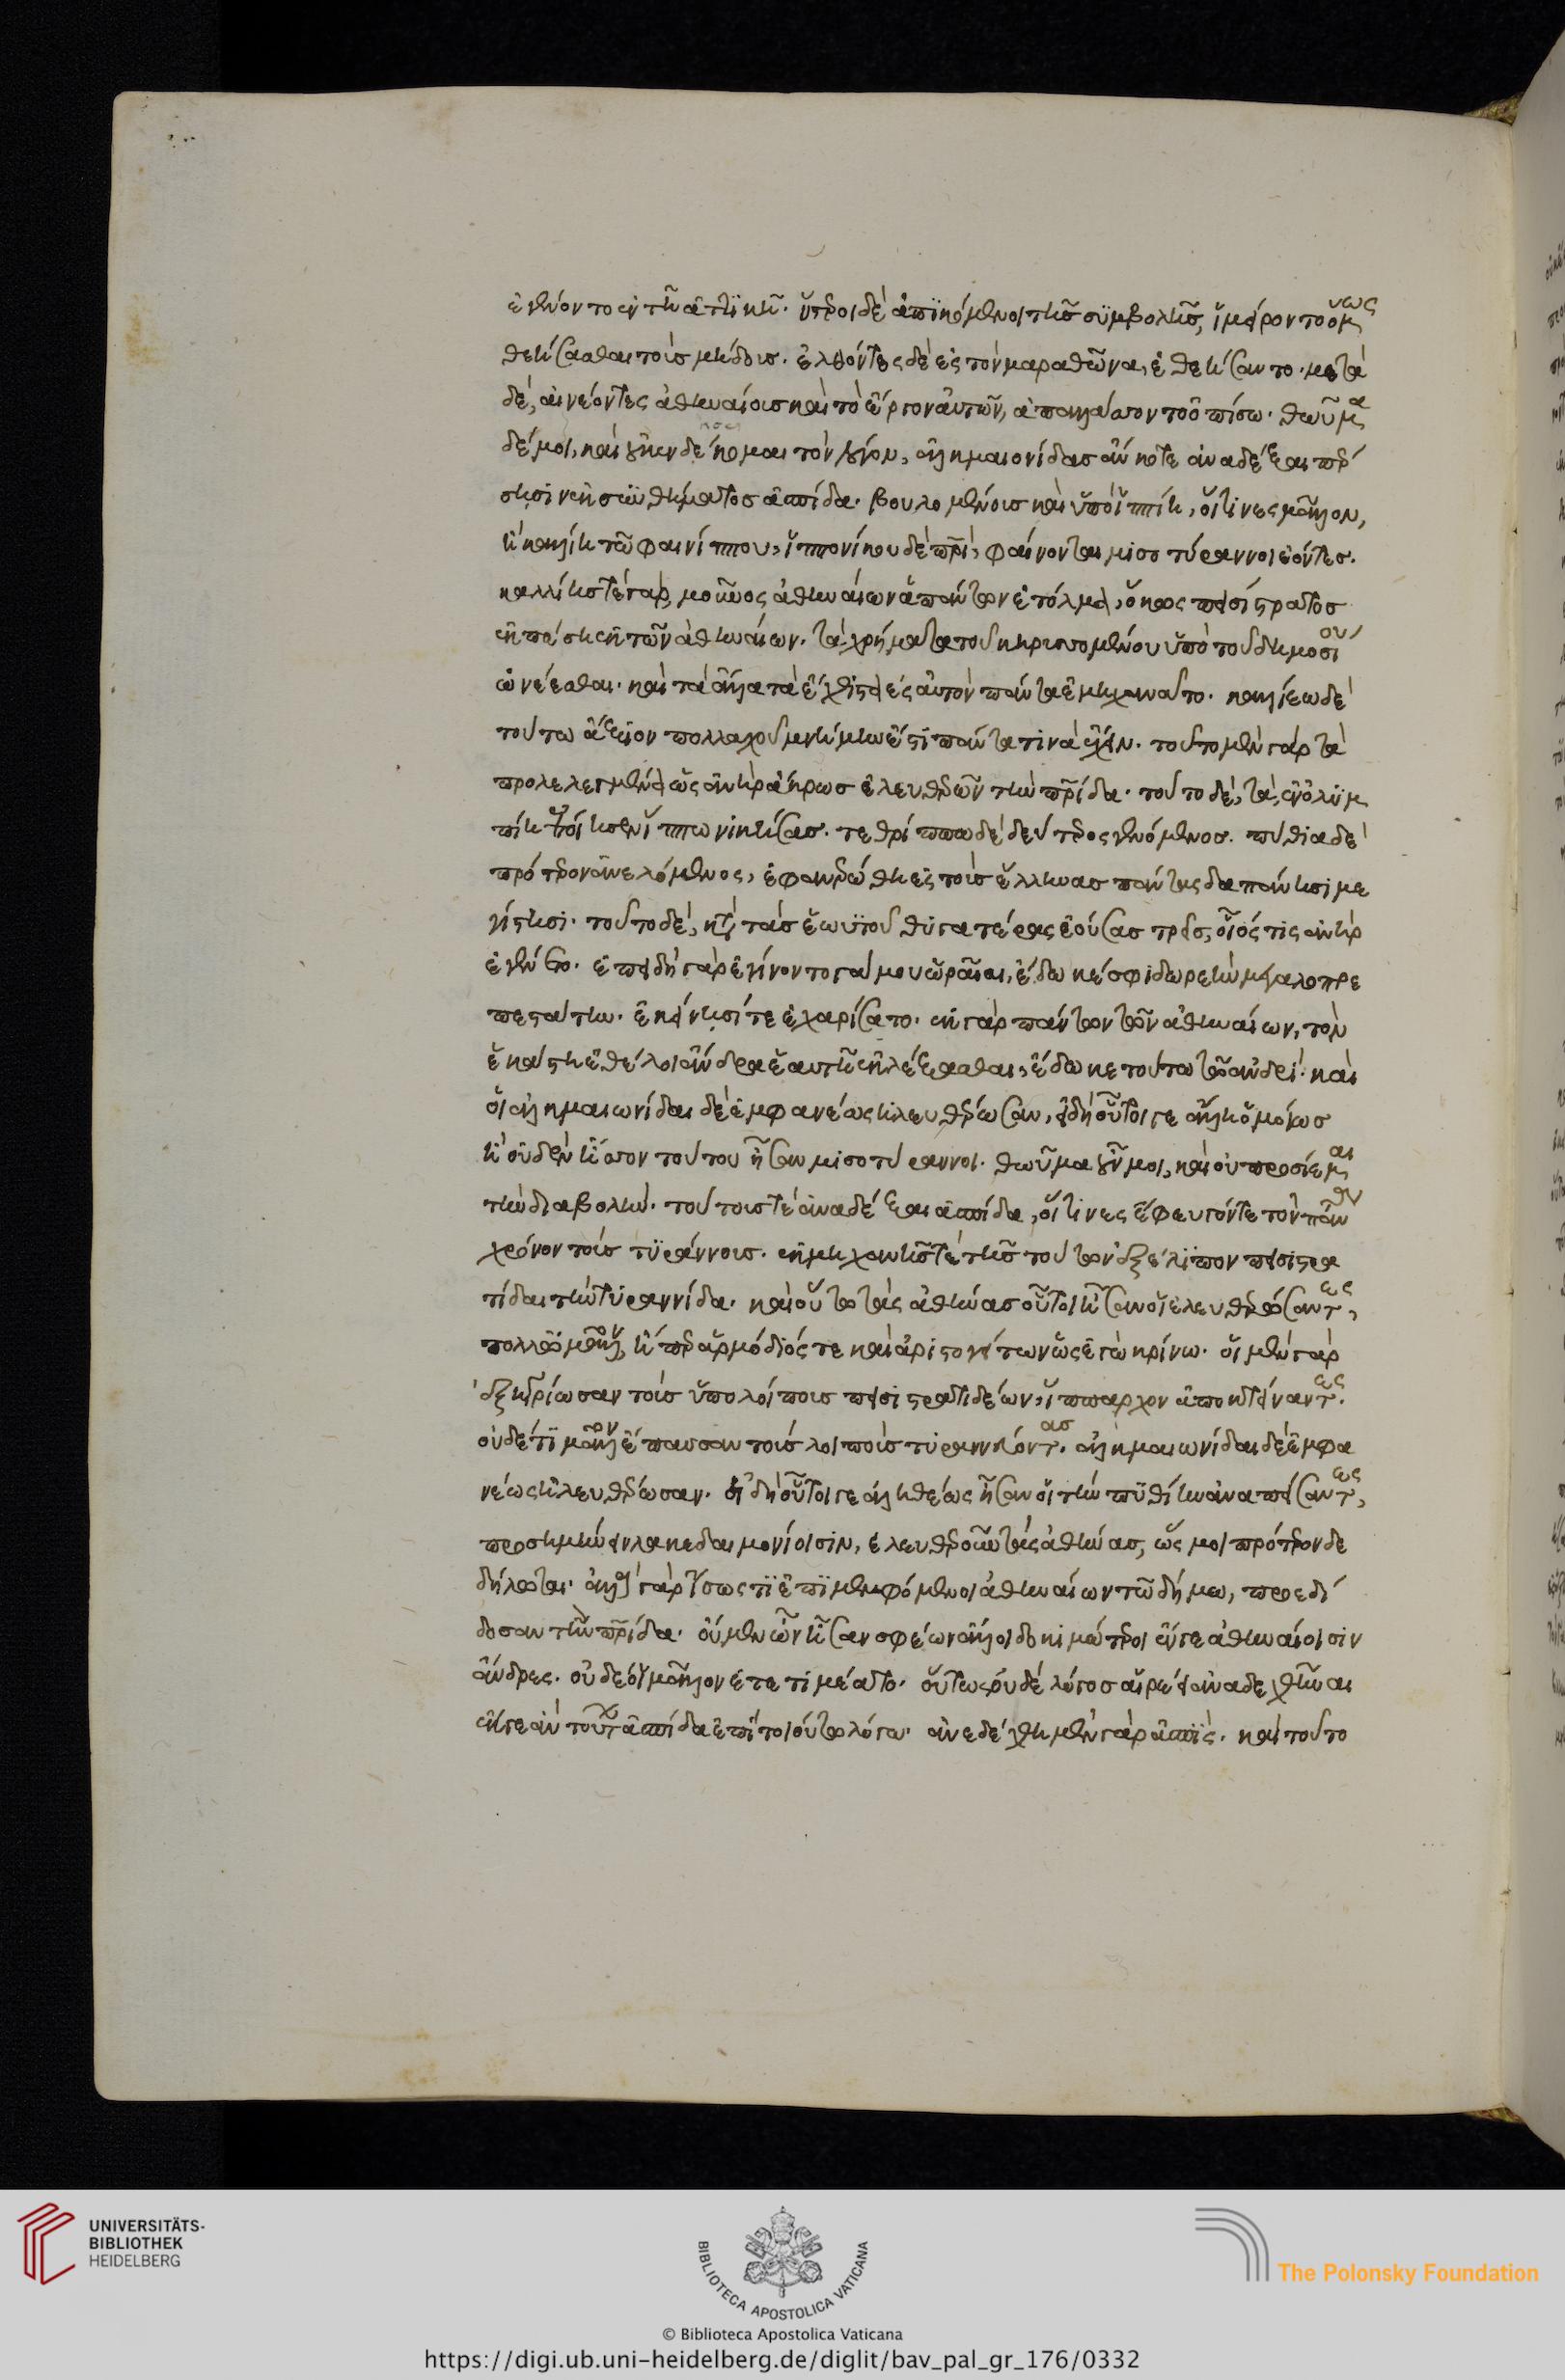 ἐγένοντο ἐν τῆ ἀττικῆ. ὕστεροι δὲ ἀπικόμενοι τῆς συμβολῆς, ἱμείροντο ὅμως
θεήσασθαι τοὺς μήδους. ἐλθόντες δὲ ἐς τὸν μαραθῶνα, ἐθεήσαντο. μετὰ
δὲ, αἰνέοντες ἀθηναίους καὶ τὸ ἔργον αὐτῶν, ἀπαλλάσσοντο ὀπίσω. θωῦμα
δέ μοι, καὶ οὐκ ἐνδέκομαι τὸν λόγον, ἀλκμαιονίδας ἄν κοτε ἀναδέξαι πέρ
σῃσι ἐκ συνθήματος ἀσπίδα. βουλομένους καὶ ὑπὸ ἱππίῃ, οἵτινες μᾶλλον,
ἢ καλλίῃ τῶ φαινίππου, ἱππονίκου δὲ πατρὶ, φαίνονται μισοτύραννοι ἐόντες.
καλλίης τε γὰρ, μοῦνος ἀθηναίων ἁπάντων ἐτόλμα, ὅκως πεισίστρατος
ἐκπέσῃ ἐκ τῶν ἀθηναίων. τὰ χρήματα τοῦ κηρυσσομένου ὑπὸ τοῦ δημοσίου
ὠνέεσθαι. καὶ τὰ ἄλλα τὰ ἔχθιστα ἐς αὐτὸν πάντα ἐμηχανᾶτο. καλλίεω δὲ
τούτω ἄξιον πολλαχοῦ μνήμην ἐστὶ πάντα τινὰ ἔχειν. τοῦτο μὲν γὰρ τὰ
προλελεγμένα ὡς ἀνὴρ ἄκρως ἐλευθερῶν τὴν πατρίδα. τοῦτο δὲ, τὰ ἐν ὀλυμ
πίῃ ἐποίησεν ἵππω νικήσας. τεθρίππω δὲ δεύτερος γενόμενος. πύθια δὲ
πρότερον ἀνελόμενος, ἐφανερώθη ἐς τοὺς ἕλληνας πάντας δαπάνῃσι με
γίστῃσι. τοῦτο δὲ, κατὰ τὰς ἑωυτοῦ θυγατέρας ἐούσας τρεῖς, οἷός τις ἀνὴρ
ἐγένετο. ἐπειδὴ γὰρ ἐγίνοντο γάμου ὡραῖαι, ἔδωκέ σφι δωρεὴν μεγαλοπρε
πεστάτην. ἐκείνῃσί τε ἐχαρίσατο. ἐκ γὰρ πάντων τῶν ἀθηναίων, τὸν
ἑκάστη ἐθέλοι ἄνδρα ἑαυτῆ ἐκλέξασθαι, ἔδωκε τούτω τῶ ἀνδρί. καὶ
οἱ ἀλκμαιωνίδαι δὲ ἐμφανέως ἠλευθέρωσαν, εἰ δὴ οὗτοί γε ἀλη ὁμοίως
ἢ οὐδὲν ἧσσον τούτου ἦσαν μισοτύραννοι. θωῦμα ὦν μοι, καὶ οὐ προσίεμαι
τὴν διαβολὴν. τούτους τε ἀναδέξαι ἀσπίδα, οἵτινες ἔφευγόν τε τὸν πάντα
χρόνον τοὺς τυράννους. ἐκ μηχανῆς τε τῆς τούτων ἐξέλιπον πεισιστρα
τίδαι τὴν τυραννίδα. καὶ οὕτω τὰς ἀθήνας οὗτοι ἦσαν οἱ ἐλευθερώσαντες,
πολλῶ μᾶλλον, ἤπερ ἁρμόδιός τε καὶ ἀριστογείτων ὡς ἐγὼ κρίνω. οἱ μὲν γὰρ
ἐξηγρίωσαν τοὺς ὑπολοίπους πεισιστρατιδέων, ἵππαρχον ἀποκτείναντες.
οὐδέ τι μᾶλλον ἔπαυσαν τοὺς λοιποὺς τυραννεύοντας. ἀλκμαιωνίδαι δὲ ἐμφα
νέως ἠλευθέρωσαν. εἰ δὴ οὗτοί γε ἀληθέως ἦσαν οἱ τὴν πυθίην ἀναπείσαντες,
προσημήνειν λακεδαιμονίοισιν, ἐλευθεροῦν τὰς ἀθήνας, ὥς μοι πρότερον δε
δήλωται. ἀλλὰ γὰρ ἴσως τι ἐπιμεμφόμενοι ἀθηναίων τῶ δήμω, προεδί
δοσαν τὴν πατρίδα. οὐ μὲν ὦν ἦσαν σφέων ἄλλοι δοκιμώτεροι ἔν γε ἀθηναίοισιν
ἄνδρες. οὐδ' οἳ μᾶλλον ἐτετιμέατο. οὕτως οὐδὲ λόγος αἱρέει ἀναδεχθῆναι
ἔκ γε ἂν τούτων ἀσπίδα ἐπὶ τοιούτω λόγω. ἀνεδέχθη μὲν γὰρ ἀσπὶς. καὶ τοῦτο
UNIVERSITÄTS-
BIBLIOTHEK
HEIDELBERG
BIBLIOTECA APOSTOLICA VATICANA
The Polonsky Foundation
© Biblioteca Apostolica Vaticana
https://digi.ub.uni-heidelberg.de/diglit/bav_pal_gr_176/0332